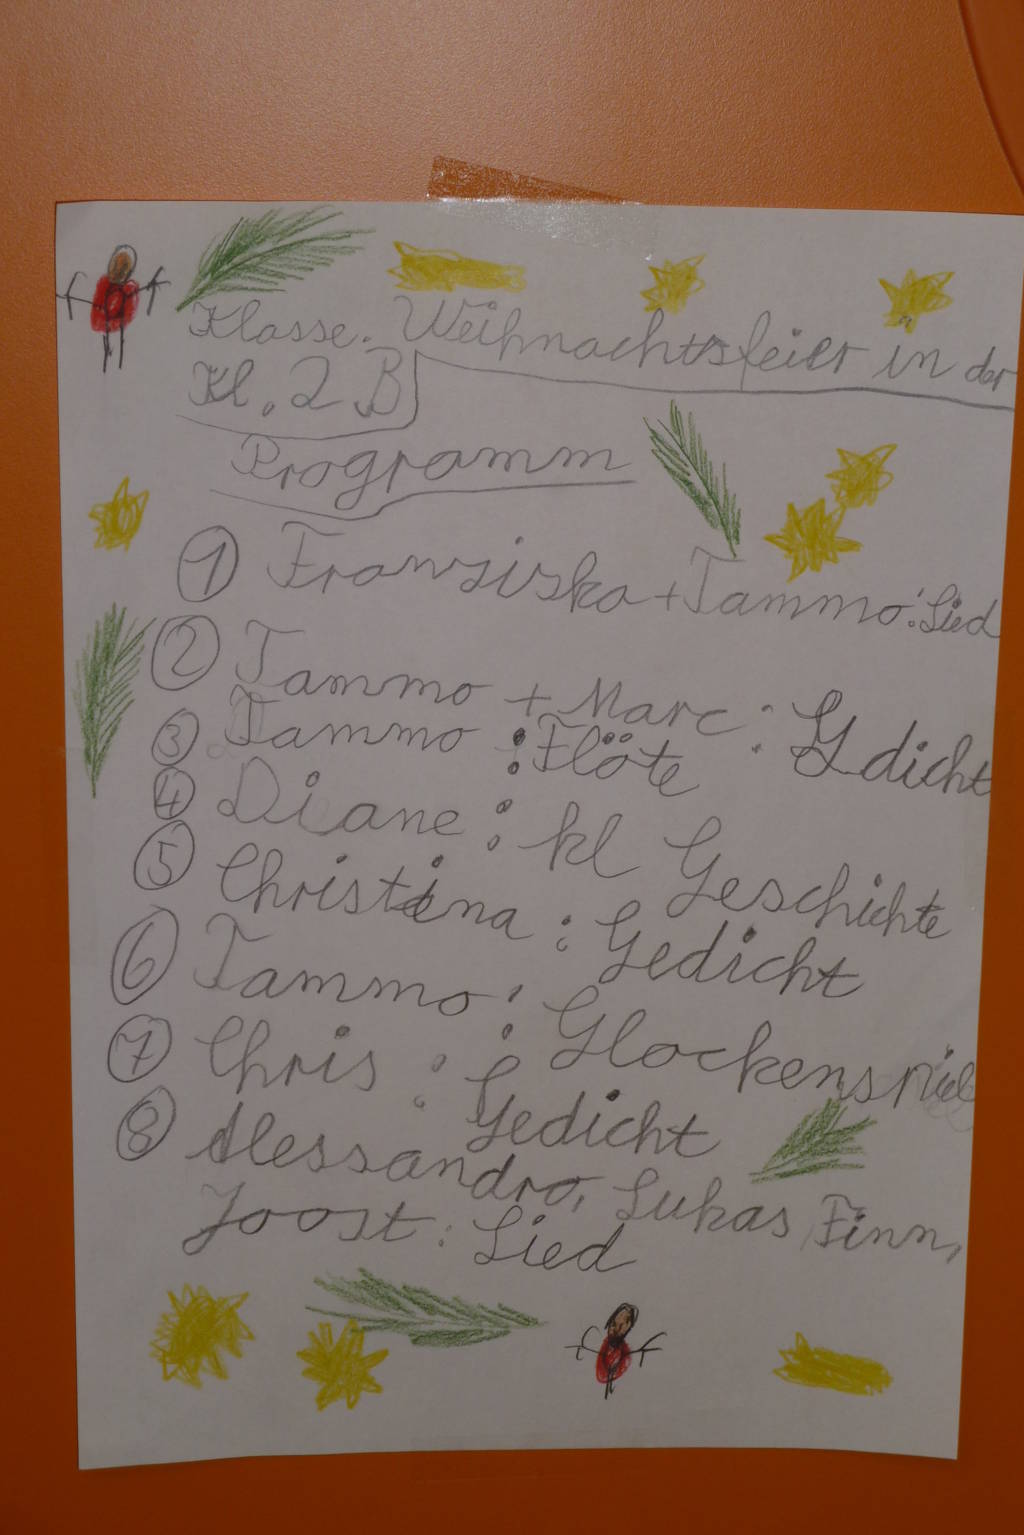 Klasse. Weihnachtsfeier in der
Kl. 2 B
Programm
1 Franziska + Tammo: Lied
2 Tammo + Marc: Gdicht
3 Tammo: Flöte
4 Diane: kl Geschichte
5 Christina: Gedicht
6 Tammo: Glockenspiel
7 Chris: Gedicht
8 Alessandro, Lukas, Finn,
Joost: Lied